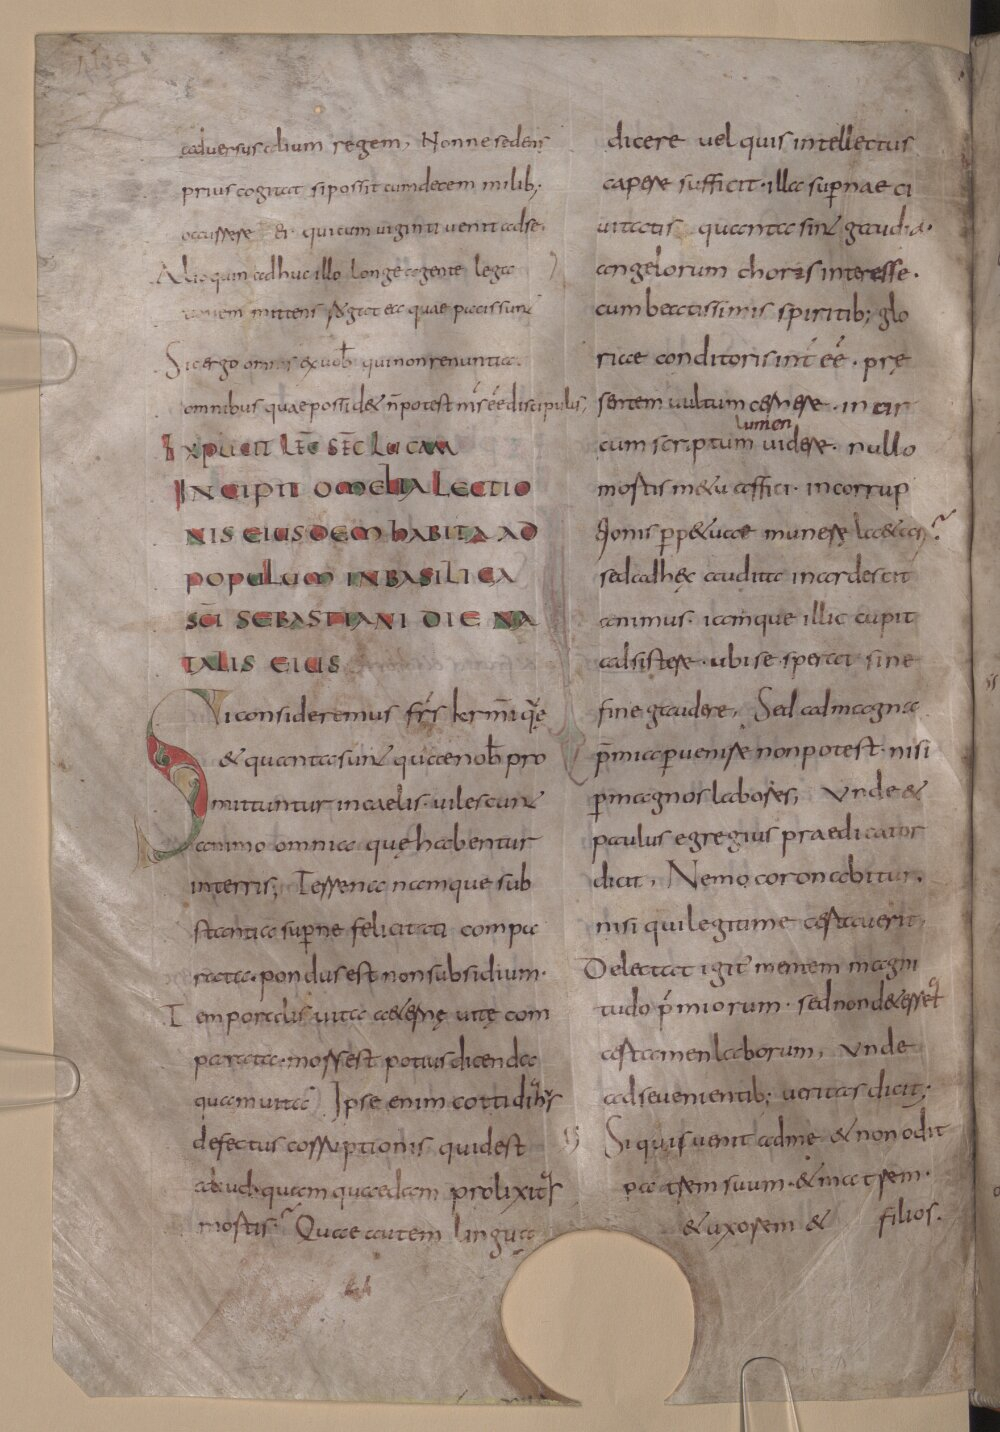 aduersus alium regem, Nonne sedens
prius cogitat si possit cum decem milib;
occurrere Ei qui cum uiginti uenit ad se.
Alioquin adhuc illo longe agente lega
tionem mittens rogat ea quae pacis sunt
Sic ergo omnis ex uob qui non renuntiat
omnibus quae possid& n̄ potest m̄s ēē discipulus,
Explicit lc̄t̄ sc̄t̄ lucam
INCIPIT OMELIA LECTIO
NIS EIUSDEM HABITA AD
POPULUM IN BASILICA
SC̄I SEBASTIANI DIE NA
TALIS EIUS
Si consideremus fr̄s karm̄i quę
& quanta sunt quae nob̄ pro
mittuntur in caelis· uilescunt
animo omnia quę habentur
in terris; Terrena namque sub
stantia sup̄ne felicitati compa
rata· pondus est non subsidium·
Temporalis uita aet̄ne uitę com
parata· mors est potius dicenda
quam uita Ipse enim cottidian̄s
defectus corruptionis quid est
aliud quam quaedam prolixitas
mortis· Quae autem lingua
dicere uel quis intellectus
capere sufficit· illa sup̄nae ci
uitatis quanta sint gaudia·
angelorum choris interesse·
cum beatissimis spiritib; glo
riae conditoris int̄ ēē· prę
sentem uultum cernere· incir
lumen
cum scriptum uidere· nullo
mortis m&u affici· incorrup
tionis p̄p&uae munere la&ari;
sed ad hęc audita inardescit
animus· iamque illic cupit
adsistere· ubi se sperat sine
fine gaudere, Sed ad magna
p̄mia p̄uenire non potest· nisi
p̄ magnos labores, Vnde &
paulus egregius praedicator
dicit, Nemo coronabitur,
nisi qui legitime certauerit,
Delectat igit̄ mentem magni
tudo p̄miorum· sed non det̄reat
certamen laborum, Vnde
ad se uenientib; ueritas dicit;
Si quis uenit ad me & non odit
patrem suum· & matrem·
& uxorem & filios·